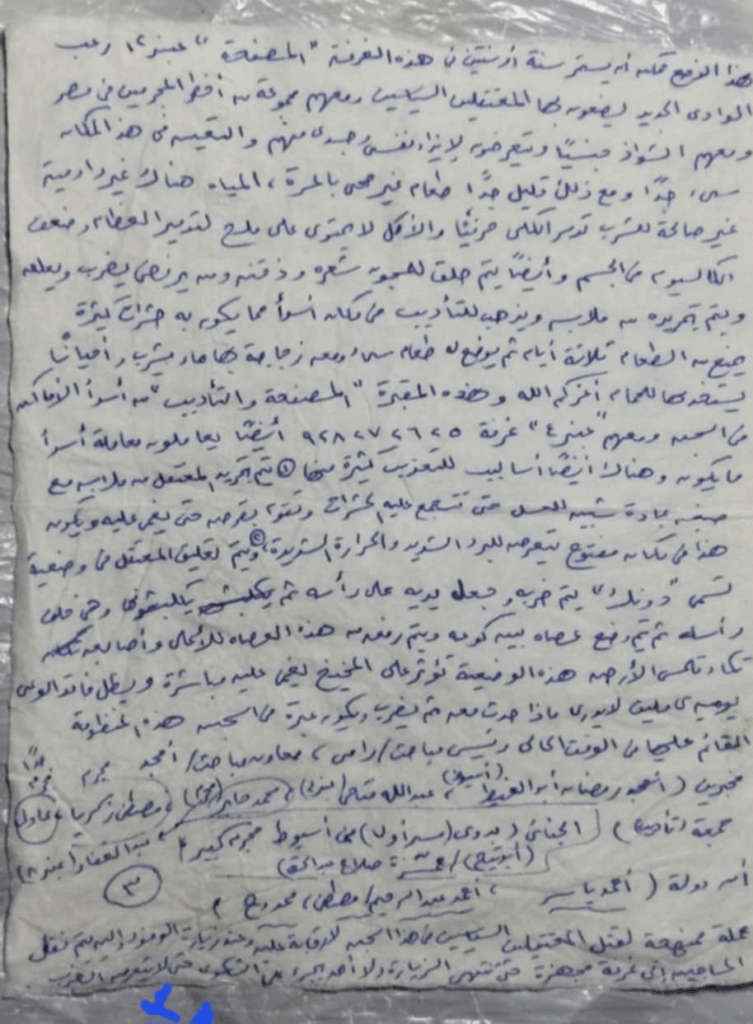 هذا الوضع يمكن أن يستمر سنة أو سنتين في هذه الغرفة "المصفحة" عنبر ١
الوادي الجديد يضعون بها المعتقلين السياسيين ومعهم مجموعة من أخطر المجرمين في مصر
ومعهم الشواذ جنسيًا ويتعرضون لإيذاء نفسي وجسدي منهم والتعيين في هذا المكان
سيء جدًا ومع ذلك قليل جدًا طعام غير صحي بالمرة، المياه هناك غير آدمية
غير صالحة للشرب تدمر الكلى جزئيًا والأكل لا يحتوي على ملح لتدمير العظام وضعف
الكالسيوم في الجسم وأيضًا يتم حلق للمسجون شعره وذقنه ومن يرفض يضرب ويعلق
ويتم تجريده من ملابسه ويذهب للتأديب في مكان أسوأ مما يكون به حشرات كثيرة
يمنع من الطعام ثلاثة أيام ثم يوضع له طعام سيء ومعه زجاجة بها ماء يشرب وأحيانًا
يستخدمها للحمام أعزكم الله وهذه المقبرة "المصفحة والتأديب" من أسوأ الأماكن
في السجن ومعهم "عنبر ٤" غرفة ٢٥ ٢٦ ٢٧ ٢٨ ٩ أيضًا يعاملون معاملة أسوأ
ما يكون وهناك أيضًا أساليب للتعذيب كثيرة منها ① يتم تجريد المعتقل من ملابسه مع
بمادة شبيه للعسل حتى تتجمع عليه الحشرات وتقوم بقرصه حتى يغمى عليه ويكون
هذا في مكان مفتوح يتعرض للبرد الشديد والحرارة الشديدة ② ويتم تعليق المعتقل في وضعية
تسمى يتم ضربه وجعل يديه على رأسه ثم يكلبشونه وهي خلف
رأسه ثم يتم وضع عصاه بين كوعه ويتم رفعه من هذا العصاه للأعلى وأصابعه
تكاد تلامس الأرض هذه الوضعية تؤثر على المخيخ يغمى عليه مباشرة ويظل فاقد الوعي
يومين لا يدري ماذا حدث معه ثم يضرب ويكون عبرة في السجن هذه المنظومة
القائم عليها في الوقت الحالي رئيس مباحث/ رامي، معاون مباحث/ أمجد مجرم جدًا
مخبرين (أحمد رمضان أبو الغيط (أسيوط)، عبدالله، محمد صابر، مصطفى زكريا، عادل
جمعة (تأديب)) الجنائي (بدوي) من أسيوط مجرم كبير، عبدالغفار (عنبر
أمن دولة (أحمد ياسر، أحمد عبدالرحيم/ مصطفى، ممدوح)
٣
عملة ممنهجة لقتل المعتقلين السياسيين في هذا السجن لا رقابة عليه وعند زيارة الوفود إليه يتم نقل
المساجين إلى غرفة مجهزة حتى تنتهي الزيارة ولا أحد يجرؤ على الشكوى حتى لا يتعرض للضرب